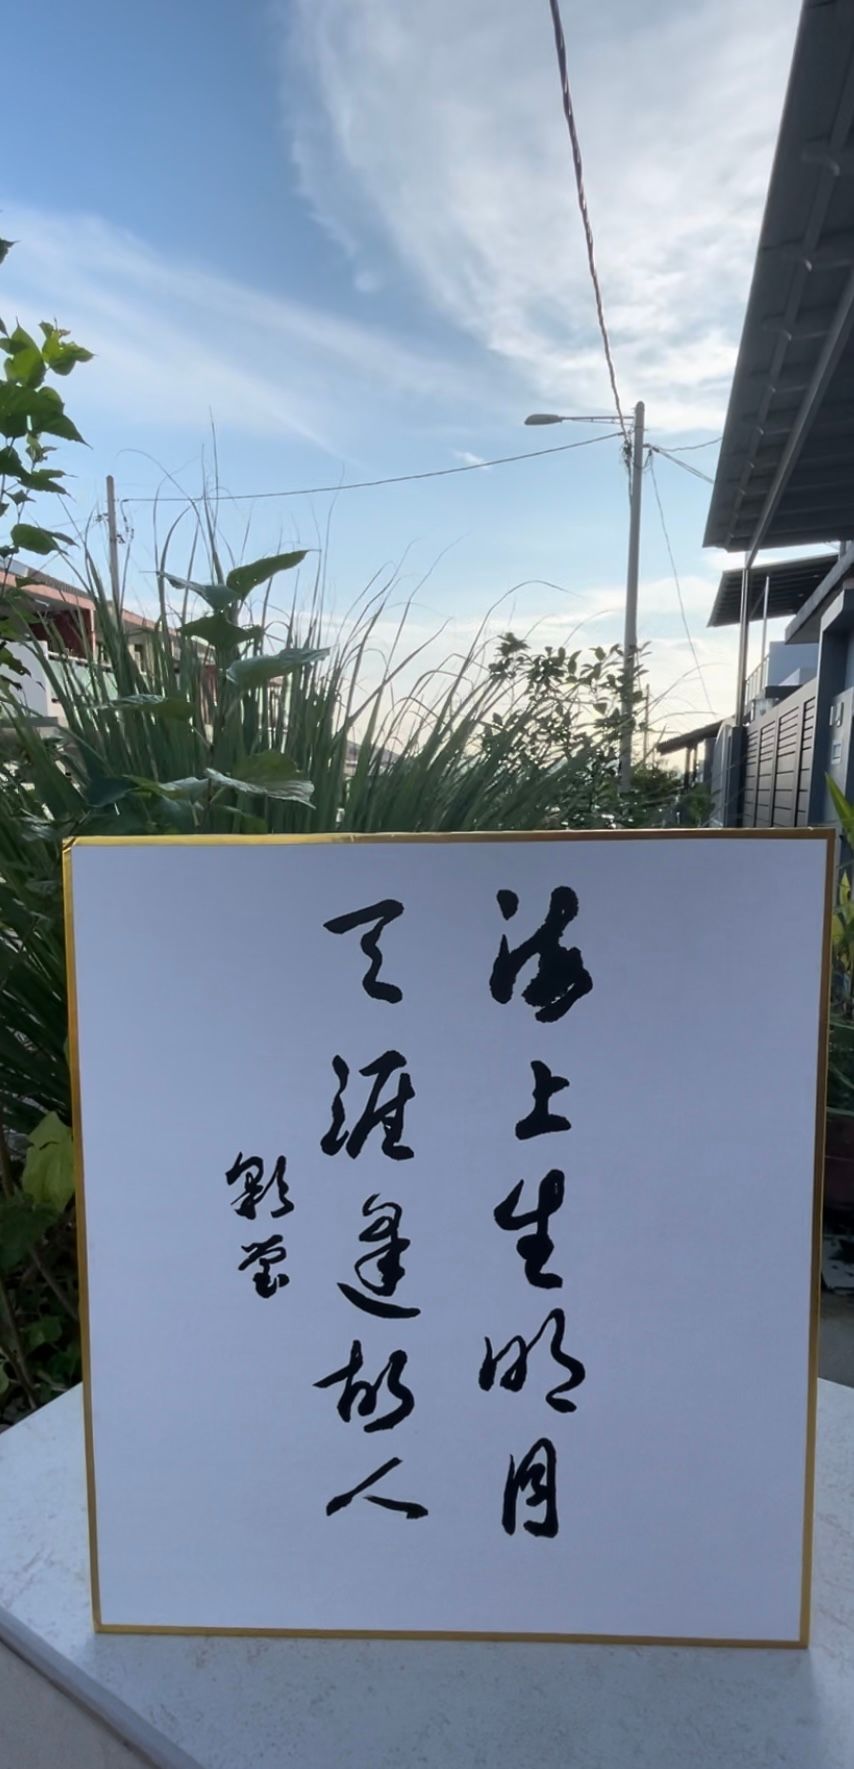 海上生明月
天涯逢故人
彩莹